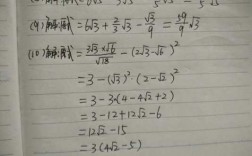 (9) 解:原式 = 6√3 + 2/3√3 - √3/9 = 59/9√3
(10) 解:原式 = 3√3×√6/√18 - (2√3-√6)²
= 3 - (√3)²·(2-√2)²
= 3 - 3×(4-4√2+2)
= 3 - 12 + 12√2 - 6
= 12√2 - 15
= 3(4√2 - 5)